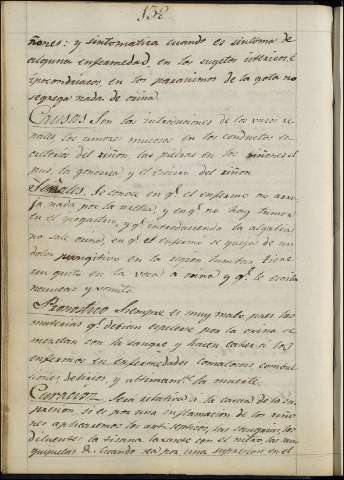 132
ñones: y sintomatica cuando es sintoma de
alguna enfermedad, en los sugetos istericos, é
ipocondriacos en los paraxismos de la gota no
segrega nada de orina.
Causas. Son las obstrucciones de los vasos re
nales los umores mucosos en los conductos es
cretorios del riñon, las piedras en los riñones el
pus, la gonorrea y el escirro del riñon
Señales. Se conoce en qe. el enfermo no arro
ja nada por la uretra, y en qe. no hay tumor
en el ipogastrio, y qe. introduciendo la algalia
no sale orina, en qe. el enfermo se queja de un
dolor pungitivo en la region lumbar, tiene
un gusto en la voca a orina y qe. le escita
nauseas y vomito.
Pronostico Siempre es muy malo, pues las
materias qe. debian espelerse por la orina se
mezclan con la sangre y hacen caher á los
enfermos en enfermedades comatosas combul
siones, delirios, y ultimamte. la muerte.
Curacion. Será relativa á la causa de la su
presion, si es por una inflamacion de los riño
nes aplicaremos los antisepticos, las sangrias, los
diluentes la tisana laxante con el nitro, las san
guijuelas &. Cuando sea por una supresion en el